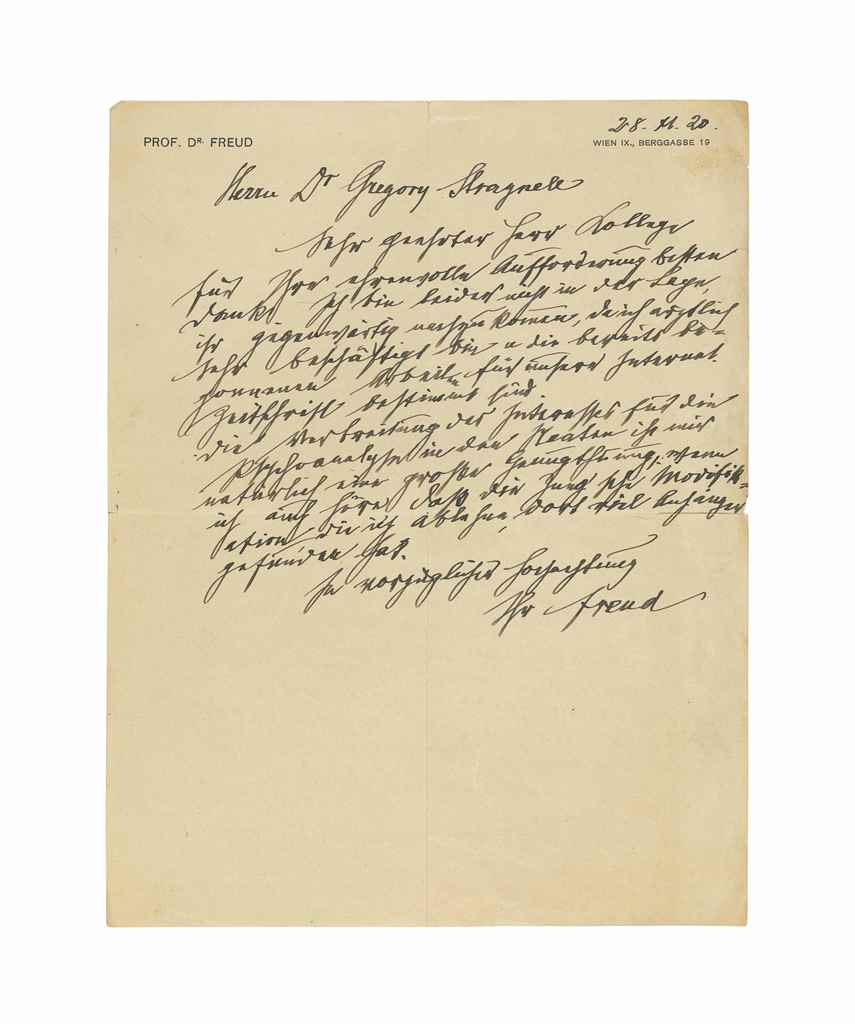 28. XI. 20.
PROF. DR. FREUD
WIEN IX., BERGGASSE 19
Herrn Dr Gregory Stragnell
Sehr geehrter Herr Kollege
Für Ihre ehrenvolle Aufforderung besten
Dank. Ich bin leider nicht in der Lage,
ihr gegenwärtig nachzukommen, da ich ärztlich
sehr beschäftigt bin u die bereits be-
gonnenen Arbeiten für unsere Internat.
Zeitschrift bestimmt sind.
Die Verbreitung des Interesses für die
Psychoanalyse in den Staaten ist mir
natürlich eine große Genugthuung, wenn
ich auch höre, daß die Jung'sche Modifik-
ation, die ich ablehne, dort viel Anhänger
gefunden hat.
In vorzüglicher Hochachtung
Ihr Freud